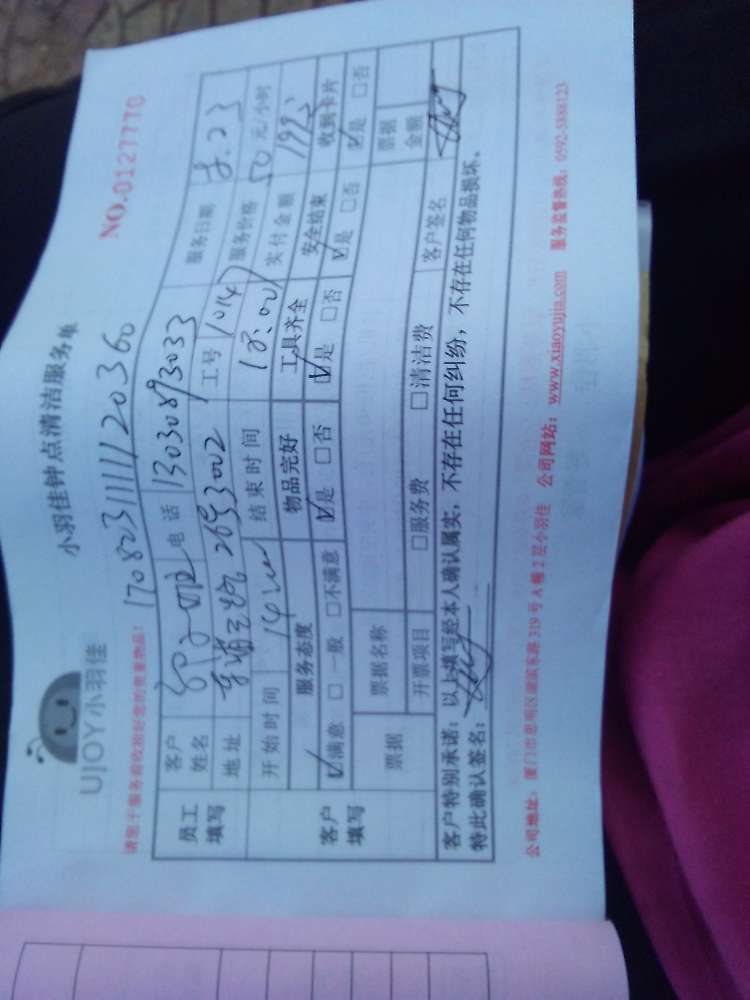 UJOY小羽佳
小羽佳钟点清洁服务单
NO.0127770
请您于服务前收拾好您的贵重物品!
170823111120360
员工填写
客户姓名
电话 13030893033
服务日期 8.23
地址
工号 1014
服务价格 50元/小时
开始时间
结束时间 18:00
实付金额
客户填写
服务态度 物品完好 工具齐全 安全结束 收到卡片
☑满意 □一般 □不满意 ☑是 □否 ☑是 □否 ☑是 □否 ☑是 □否
票据
票据名称
票据金额
开票项目 □服务费 □清洁费
客户签名
客户特别承诺:以上填写经本人确认属实,不存在任何纠纷,不存在任何物品损坏。
特此确认签名:
公司地址:厦门市思明区湖滨东路319号A幢2层小羽佳 公司网站:www.xiaoyujia.com 服务监督热线:0592-5888123